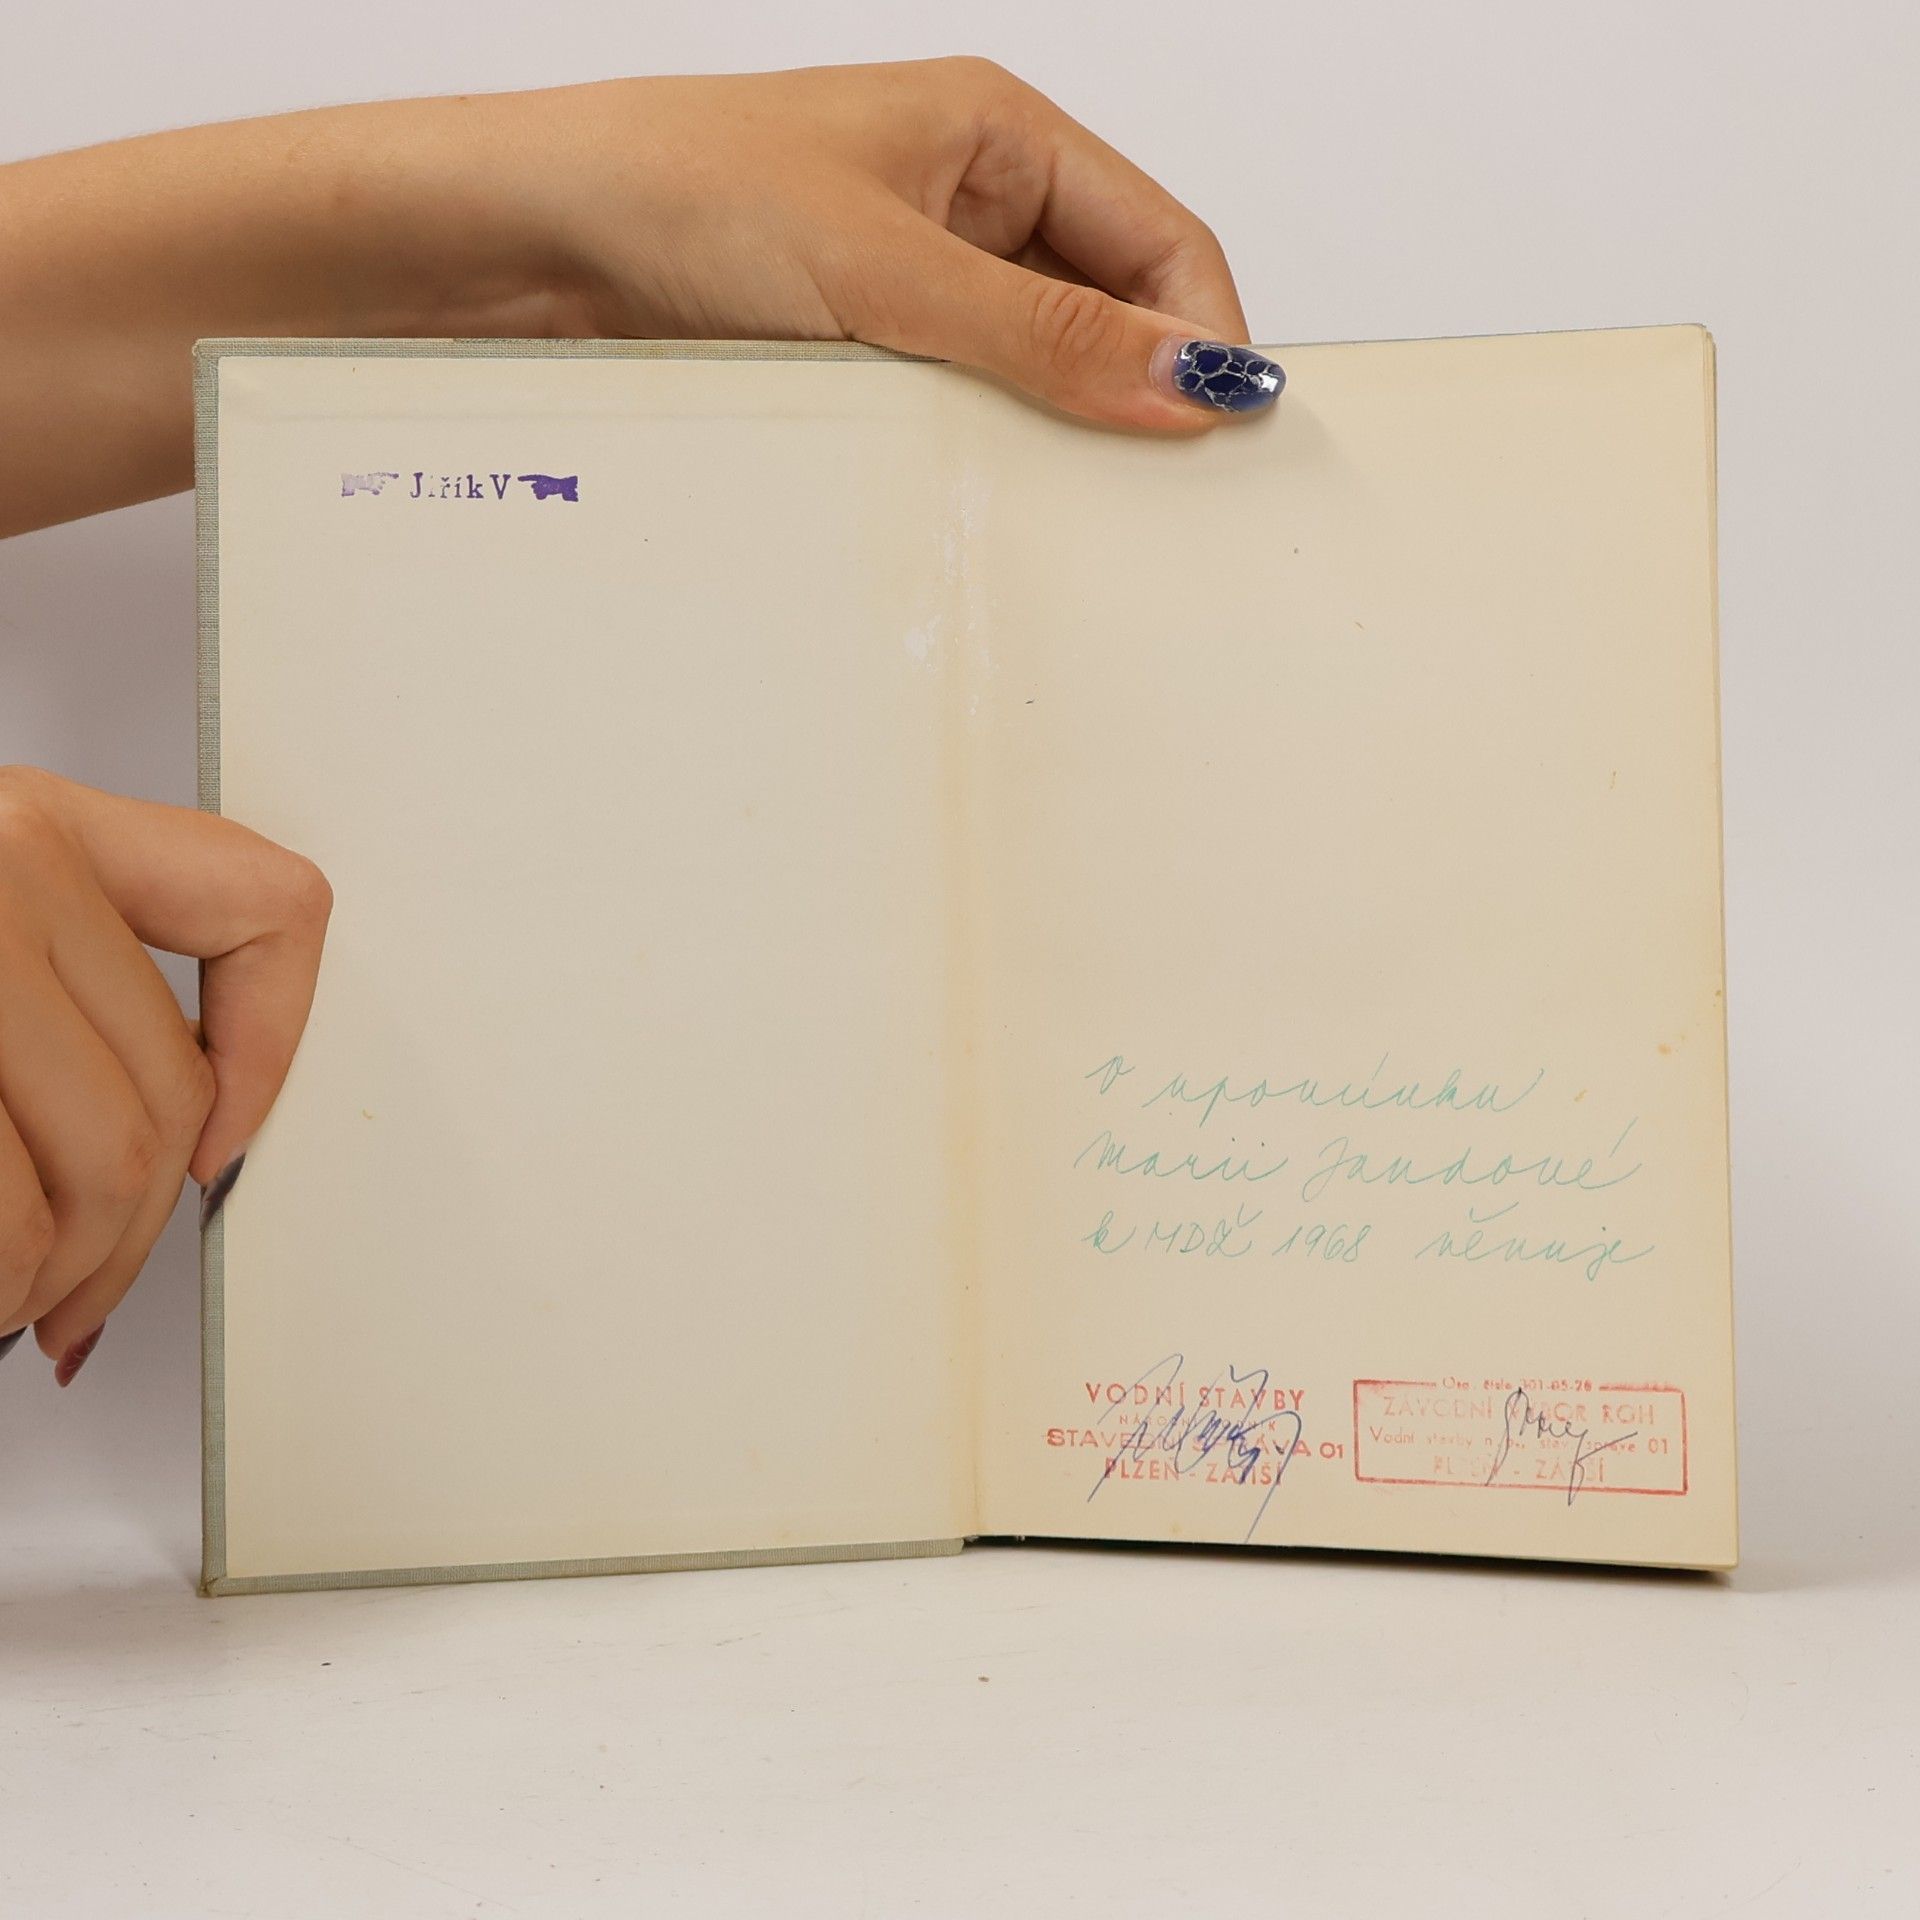 Jiřík V
V upomínku
Marii Jandové
k MDŽ 1968 věnuje
VODNÍ STAVBY
NÁRODNÍ PODNIK
STAVEBNÍ SPRÁVA 01
PLZEŇ - ZÁTIŠÍ
Org. číslo 301-05-26
ZÁVODNÍ VÝBOR ROH
Vodní stavby n. p., stav. správa 01
PLZEŇ - ZÁTIŠÍ